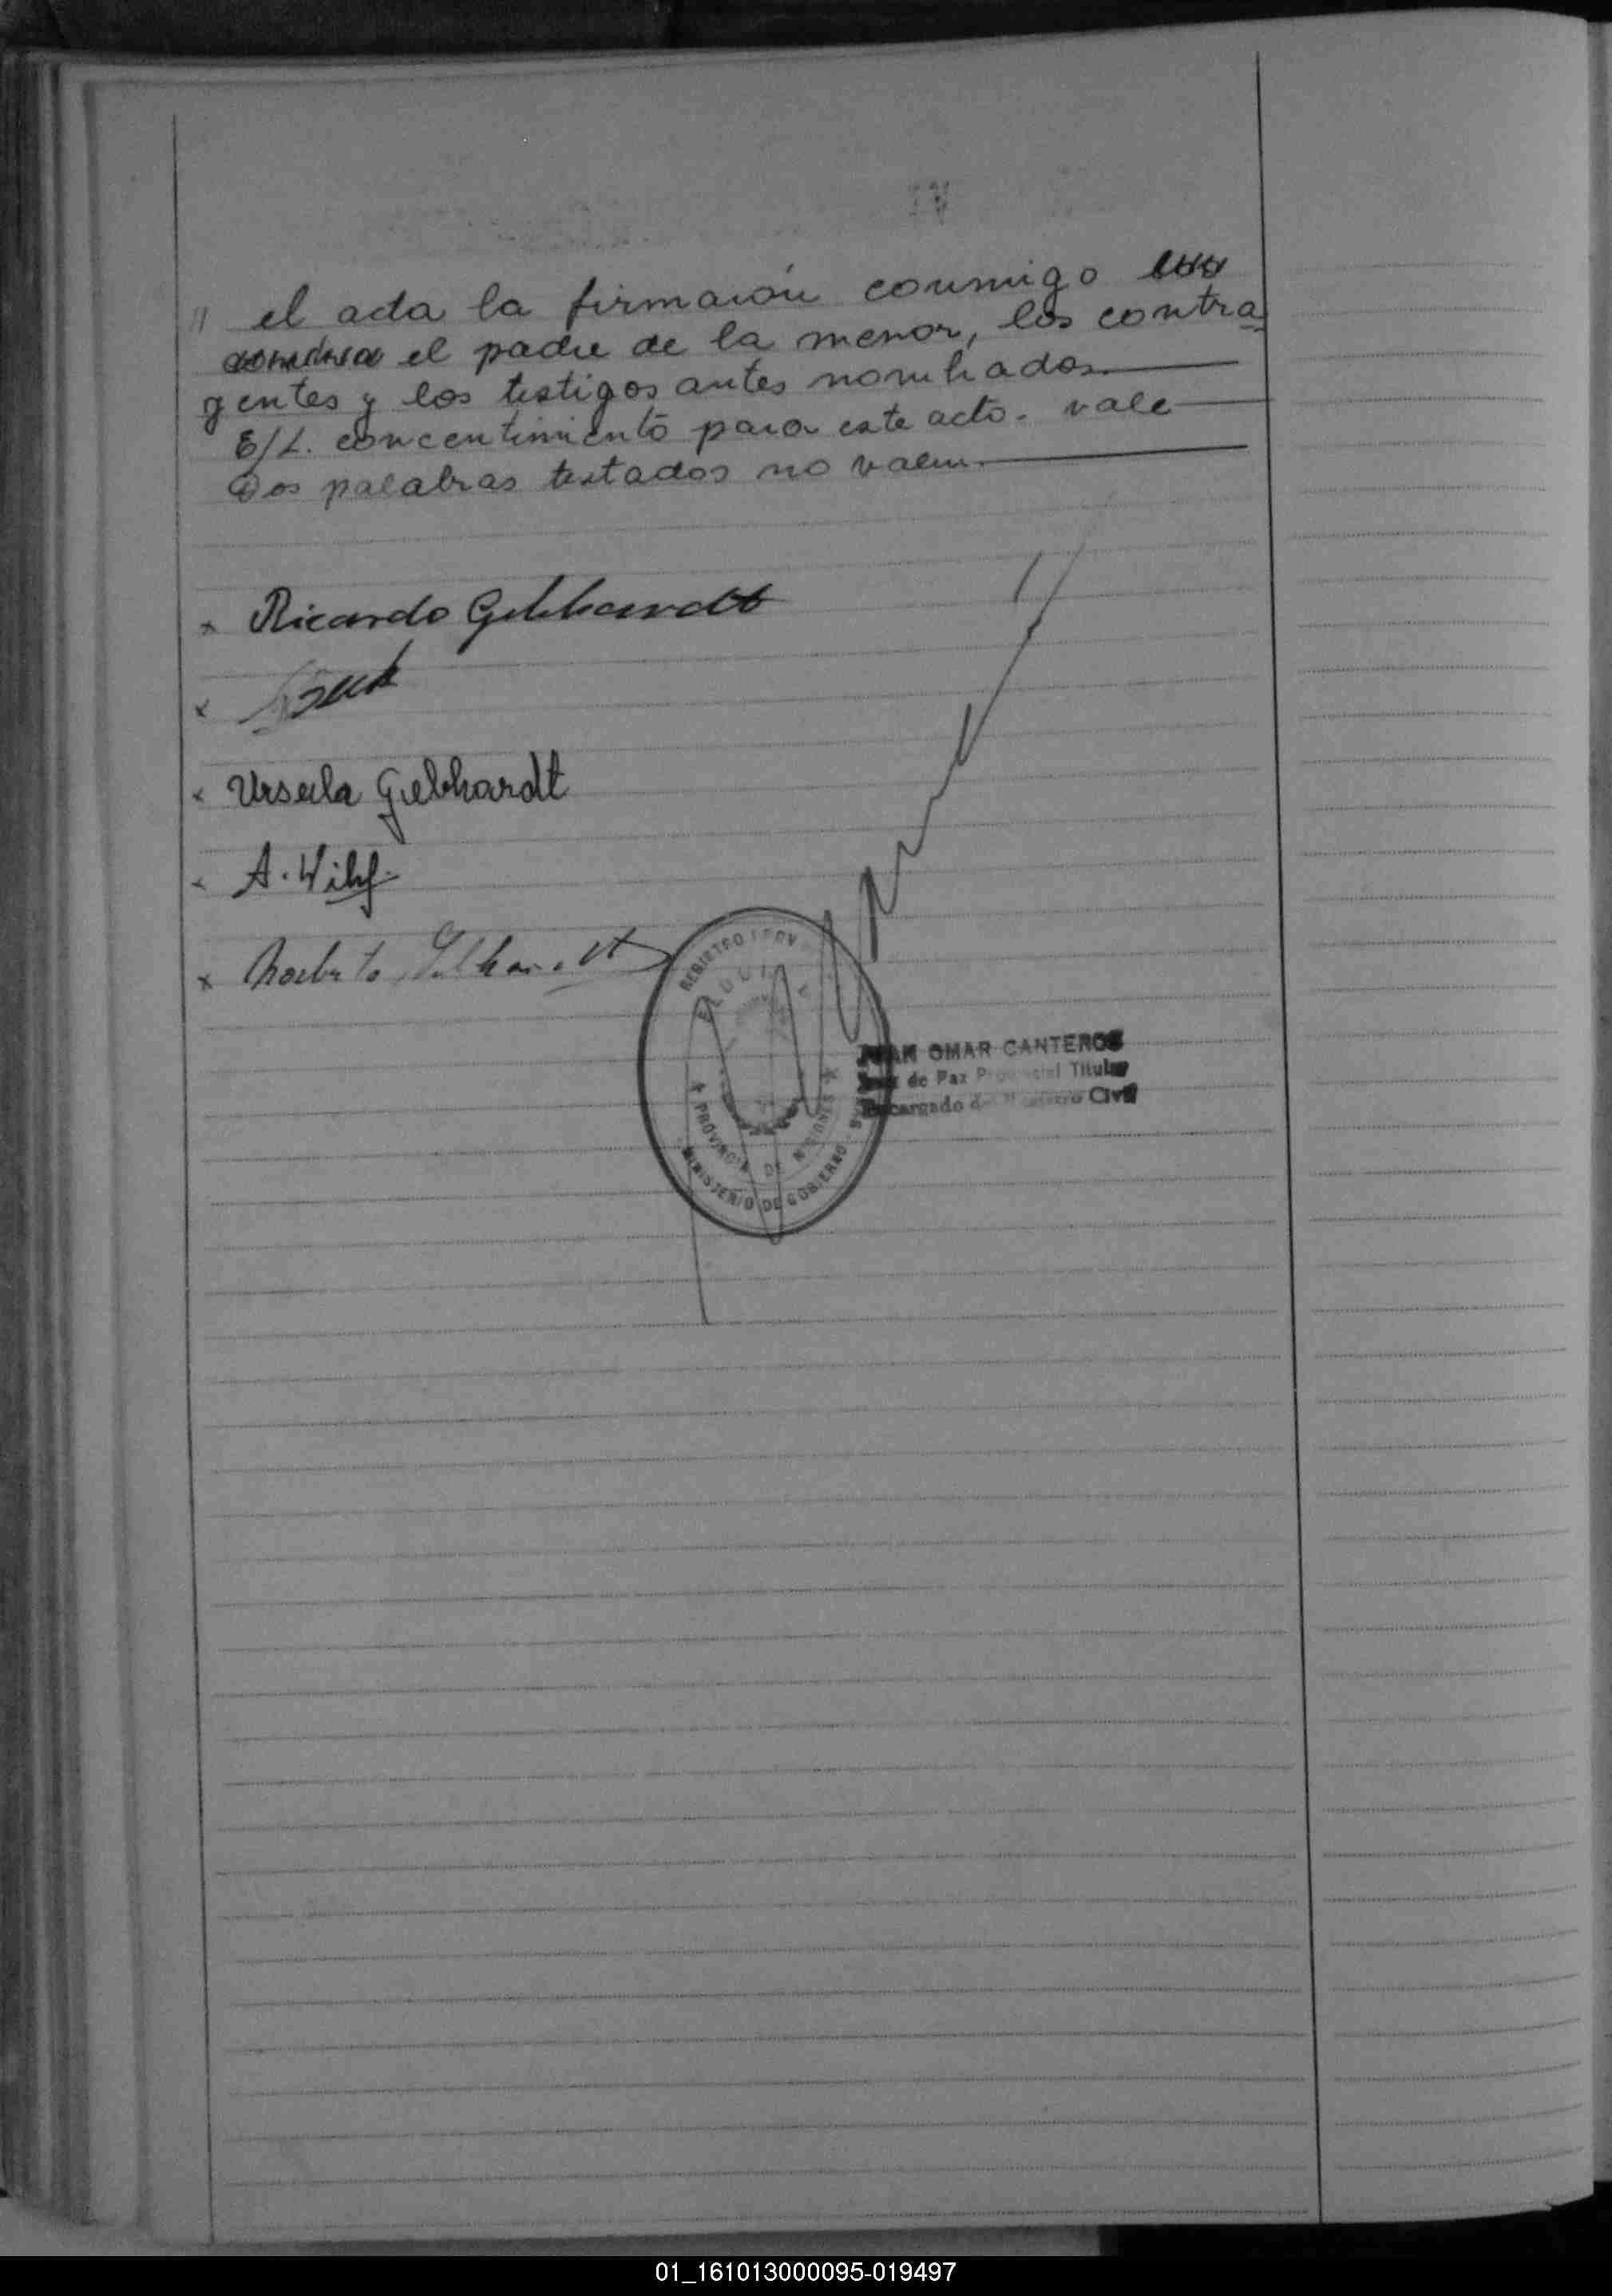 // el acta la firmaron conmigo
el padre de la menor, los contra
gentes y los testigos antes nombrados.
E/L. concentimiento para este acto. vale
Dos palabras testados no valen.
x Ricardo Gebhardt
x
x Ursula Gebhardt
x A. Wilf.
x Norberto Gebhardt
REGISTRO PROV
PROVINCIA DE MISIONES
MINISTERIO DE GOBIERNO
JUAN OMAR CANTEROS
Juez de Paz Provincial Titular
Encargado del Registro Civil
01_161013000095-019497